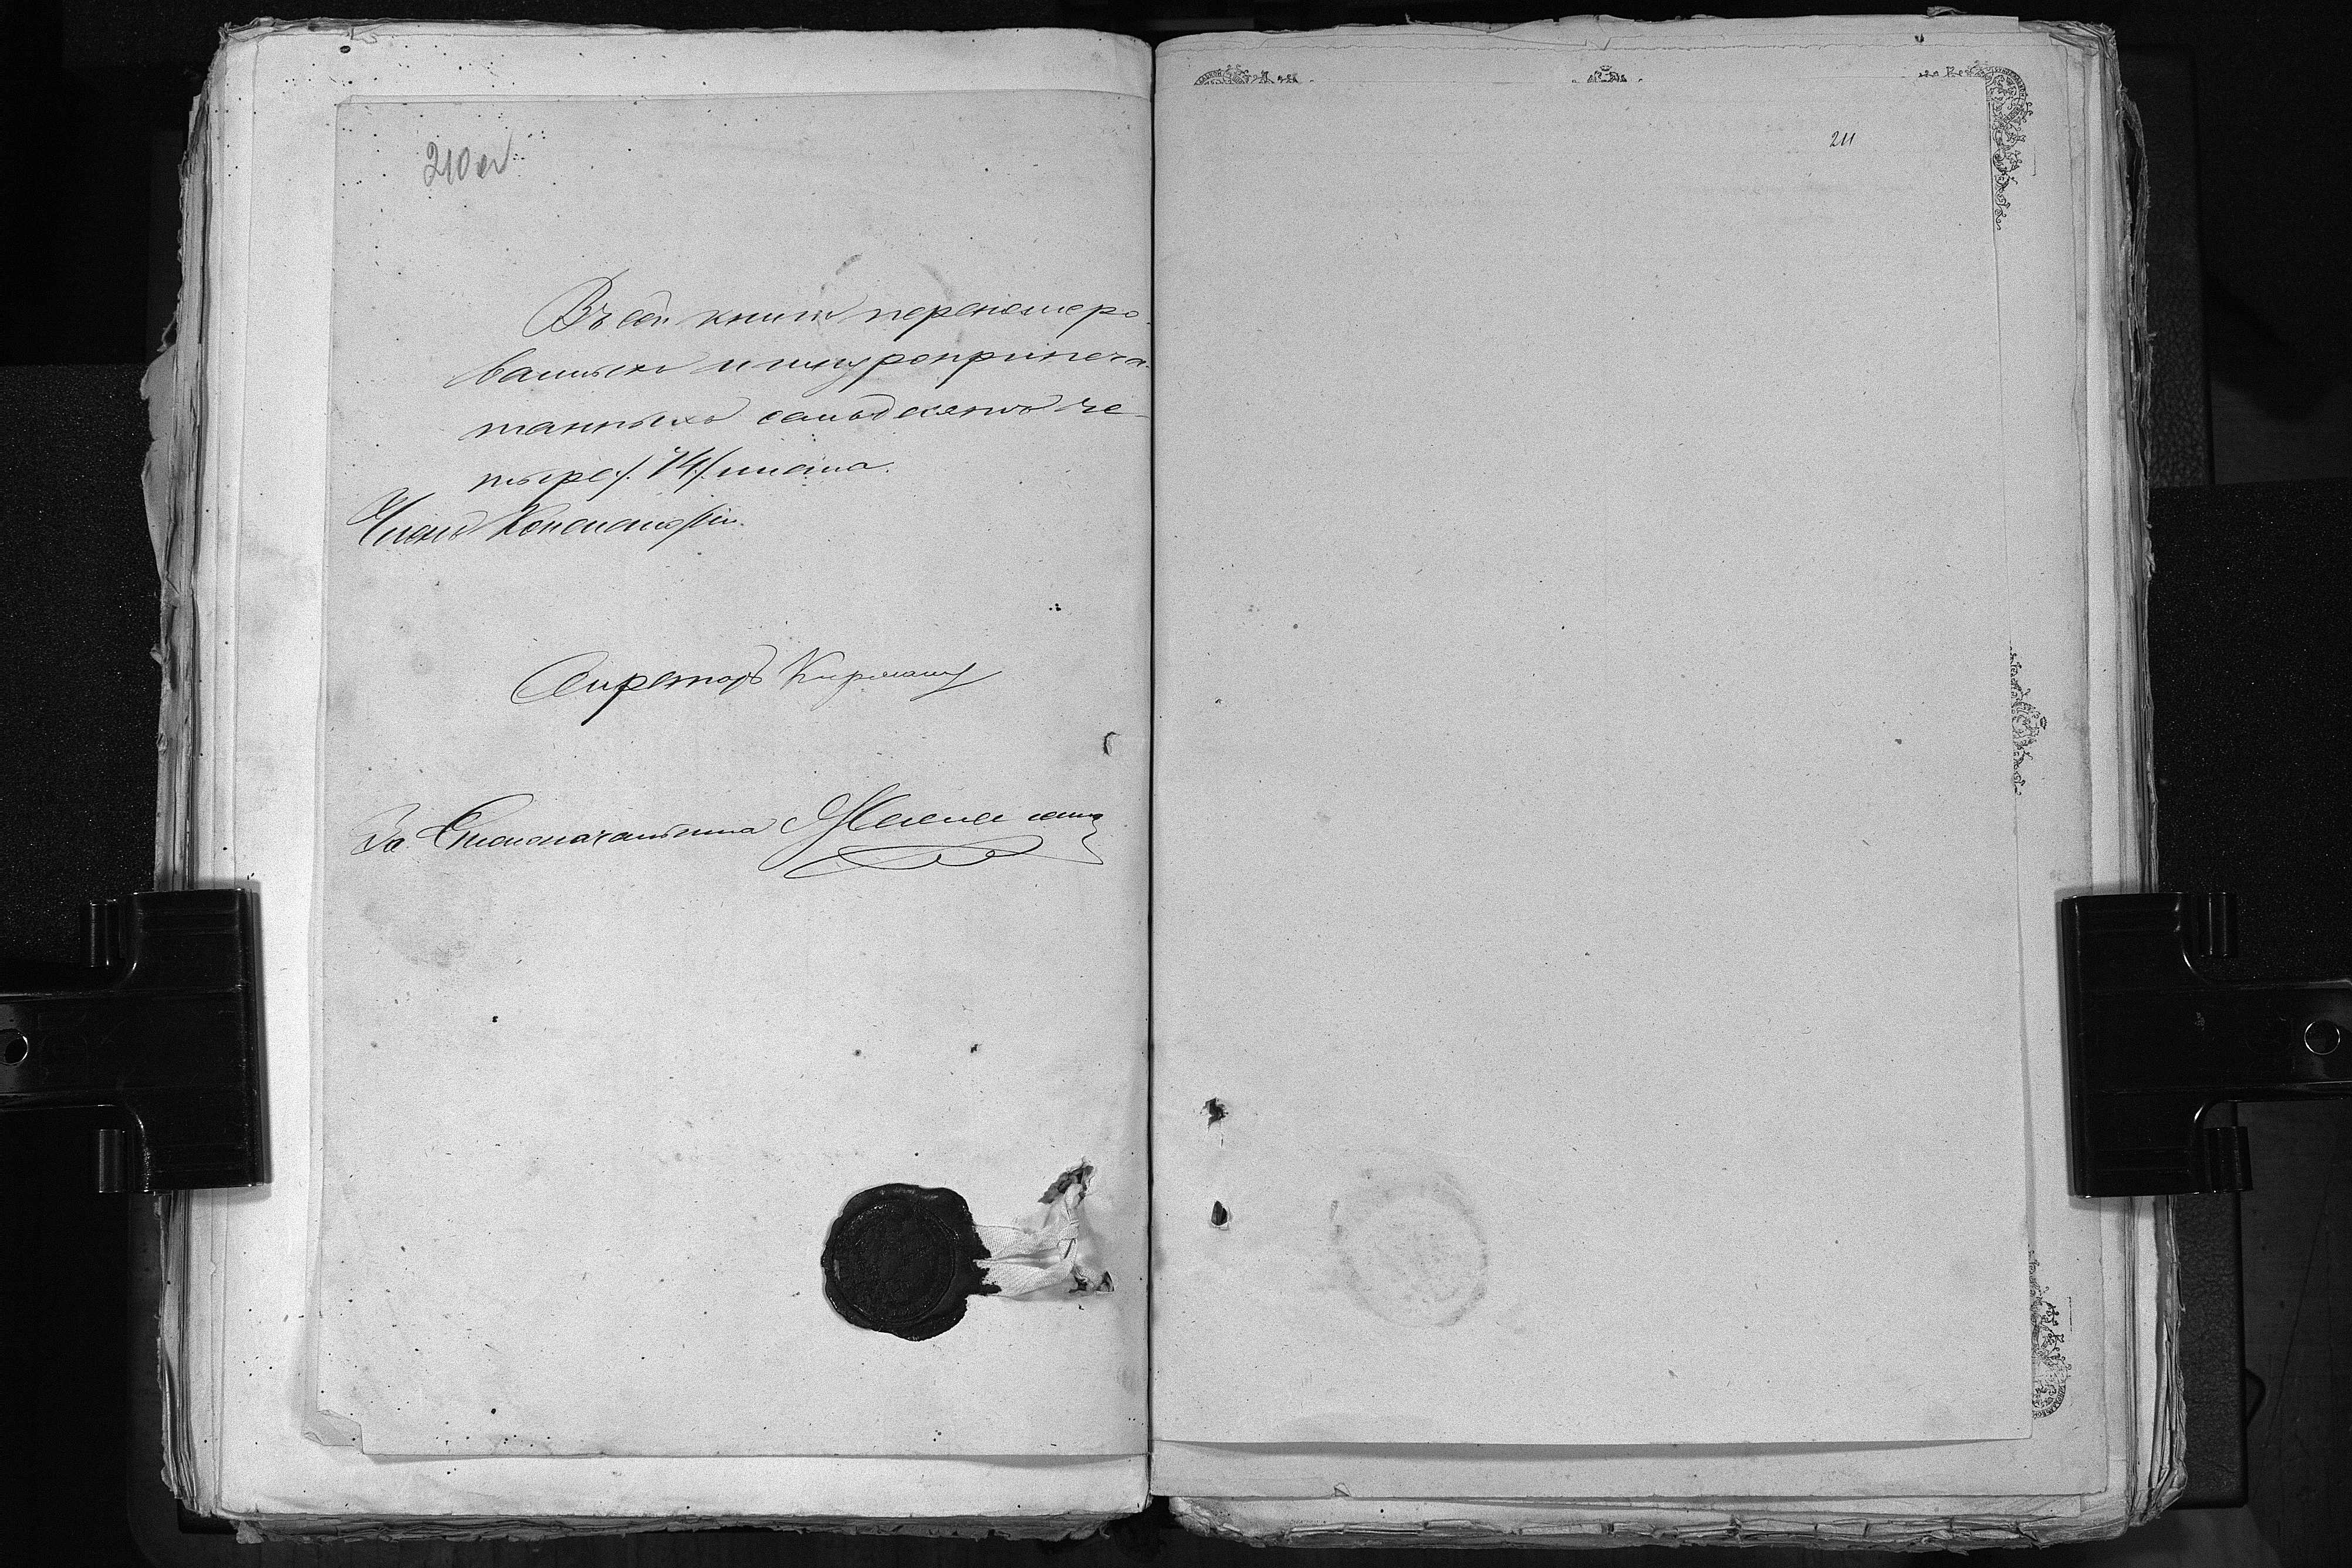 210 об
Въ сей книгѣ перенумеро-
ванныхъ и шнуроприпеча-
танныхъ семьдесятъ че-
тыре /:74:/ листа.
Членъ Консисторіи
Секретарь
За Столоначальника
211